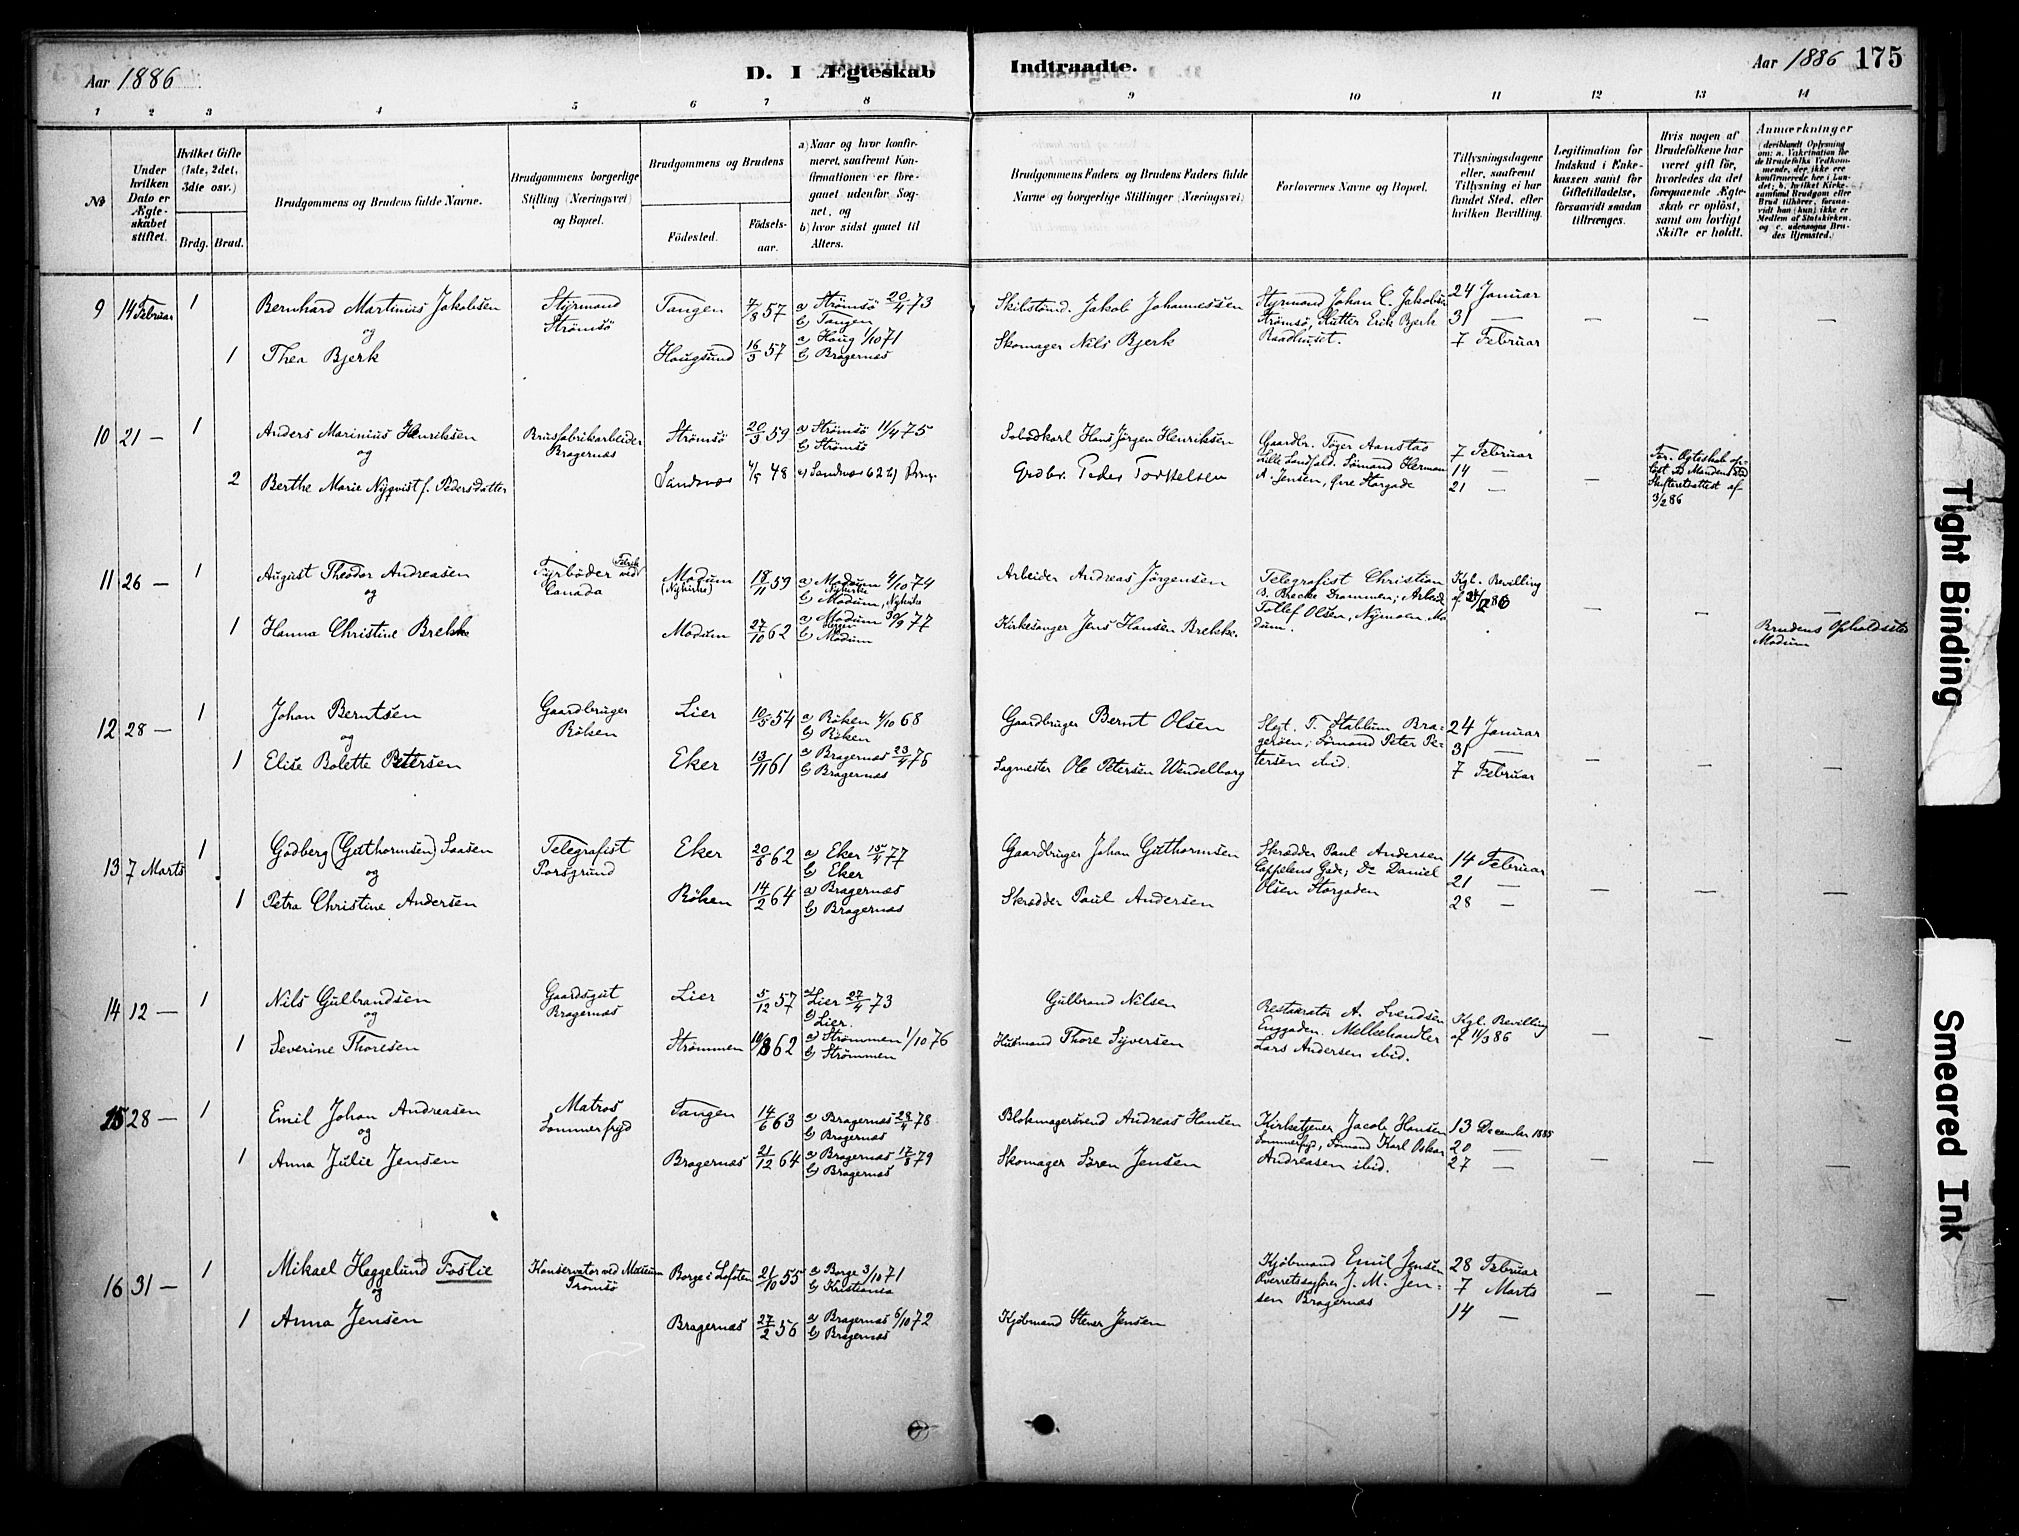 Aar 1886
D. I Ægteskab
Indtraadte.
Aar 1886 175
1 2 3 4 5 6 7 8 9 10 11 12 13 14
No
Under hvilken Dato er Ægteskabet stiftet.
Hvilket Gifte (1ste, 2det, 3die osv.)
Brdg. Brud.
Brudgommens og Brudens fulde Navne.
Brudgommens borgerlige Stilling (Næringsvei) og Bopæl.
Brudgommens og Brudens
Födested.
Födsels-aar.
a) Naar og hvor konfirmeret, saafremt Konfirmationen er foregaaet udenfor Sognet, og
b) hvor sidst gaaet til Alters.
Brudgommens Faders og Brudens Faders fulde Navne og borgerlige Stillinger (Næringsvei)
Forlovernes Navne og Bopæl.
Tillysningsdagene eller, saafremt Tillysning ei har fundet Sted, efter hvilken Bevilling.
Legitimation for Indskud i Enkekassen samt for Giftetilladelse, forsaavidt saadan tiltrænges.
Hvis nogen af Brudefolkene har været gift för, hvorledes da det foregaaende Ægteskab er oplöst, samt om lovligt Skifte er holdt.
Anmærkninger (deriblandt Oplysning om: a. Vakcination for de Brudefolks Vedkommende, der ikke ere konfirmerede her i Landet; b. hvilket Kirkesamfund Brudgom eller Brud tilhörer, forsaavidt han (hun) ikke er Medlem af Statskirken, og c. udensogns Brudes Hjemsted.)
9 14 Februar 1 Bernhard Martinius Jakobsen Styrmand Strömsö Tangen 7/8 57 a) Strömsö 20/4 73 b) Tangen Skibstömd. Jakob Johannessen Styrmand Johan C. Jakobsen 24 Januar
og Strömsö, Slutter Erik Bjerk 31 —
1 Thea Bjerk Haugsund 16/3 57 a) Haug 1/10 71 b) Bragernæs Skomager Nils Bjerk Raadhuset. 7 Februar
10 21 — 1 Anders Marinius Henriksen Brusfabrikarbeider Bragernæs Strömsö 20/3 59 a) Strömsö 11/4 75 b) Strömsö Hans Jörgen Henriksen Gaardbr. Töger Aanstad 7 Februar
og Lille Landfald. Sömand Herman 14 —
2 Berthe Marie Nyqvist f. Pedersdatter Sandsvær 48 a) Sandsvær 62 b) Brag. Grdbr. Peder Torkelsen A. Jensen, Övre Storgade 21 —
For. Ægteskab oplöst v. Mandens Död Skifteretsattest af 3/2 86
11 26 — 1 August Theodor Andreasen Fyrböder ved Fabrik Canada Modum (Nykirke) 18/11 59 a) Modum Nykirke 4/10 74 b) Modum, Nykirke Arbeider Andreas Jörgensen Telegrafist Christian Kgl. Bevilling
og B. Brecke Drammen; Arbeid.
1 Hanna Christine Brekke Modum 27/10 62 a) Modum 30/9 77 b) Modum Kirkesanger Jens Hansen Brekke. Totlef Olsen, Nymoen Modum.
Brudens Opholdssted Modum
12 28 — 1 Johan Berntsen Gaardbruger Röken Lier 10/5 54 a) Röken 4/10 68 b) Röken Gaardbruger Bernt Olsen T. Stablum Bra- 24 Januar
og geröen; Sömand Peter Pe- 31 —
1 Elise Bolette Petersen Eker 13/11 61 a) Bragernæs 23/4 76 b) Bragernæs Sagmester Ole Petersen Wendelborg tersen ibid. 7 Februar
13 7 Marts 1 Godberg (Guthormsen) Saasen Telegrafist Porsgrund Eker 20/6 62 a) Eker 15/4 77 b) Eker Gaardbruger Johan Guthormsen Skrædder Paul Andersen 14 Februar
og Cappelens Gade; Do Daniel 21 —
1 Petra Christine Andersen Röken 14/2 64 a) Bragernæs b) Bragernæs Skrædder Paul Andersen Olsen Storgaden 28 —
14 12 — 1 Nils Gulbrandsen Gaardsgut Bragernæs Lier 5/12 57 a) Lier 27/4 73 b) Lier. Gulbrand Nilsen Restauratör A. Svendsen Kgl. Bevilling
og Enggaden. Melkehandler af 11/3 86
1 Severine Thoresen Strömmen 62 a) Strömmen 1/10 76 b) Strömmen Husmand Thore Syversen Lars Andersen ibid.
15 28 — 1 Emil Johan Andreasen Matros Sommerfryd Tangen 14/6 63 a) Bragernæs 28/4 78 b) Bragernæs Blokmagersvend Andreas Hansen Kirketjener Jacob Hansen 13 December 1885
og Sommerfryd, Sömand Karl Oskar 20 —
1 Anna Julie Jensen Bragernæs 21/12 64 a) Bragernæs 17/8 79 b) Bragernæs Skomager Sören Jensen Andreasen ibid. 27 —
16 31 — 1 Mikael Heggelund Foslie Konservator ved Museum Tromsö Borge i Lofoten 21/10 55 a) Borge 3/10 71 b) Kristiania Kjöbmand Emil Jensen 28 Februar
og Overretssagförer J. M. Jen- 7 Marts
1 Anna Jensen Bragernæs 27/2 56 a) Bragernæs 6/10 72 b) Bragernæs Kjöbmand Stener Jensen sen Bragernæs 14 —
Tight Binding
Smeared Ink